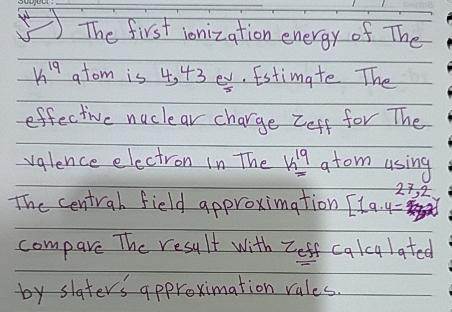 The first ionization energy of The
K19 atom is 4,43 ev. Estimate The
effective nuclear charge Zeff for The
valence electron in The K19 atom using
27,2
The central field approximation [1a.u=
compare The result with Zeff calculated
by slater's approximation rules.